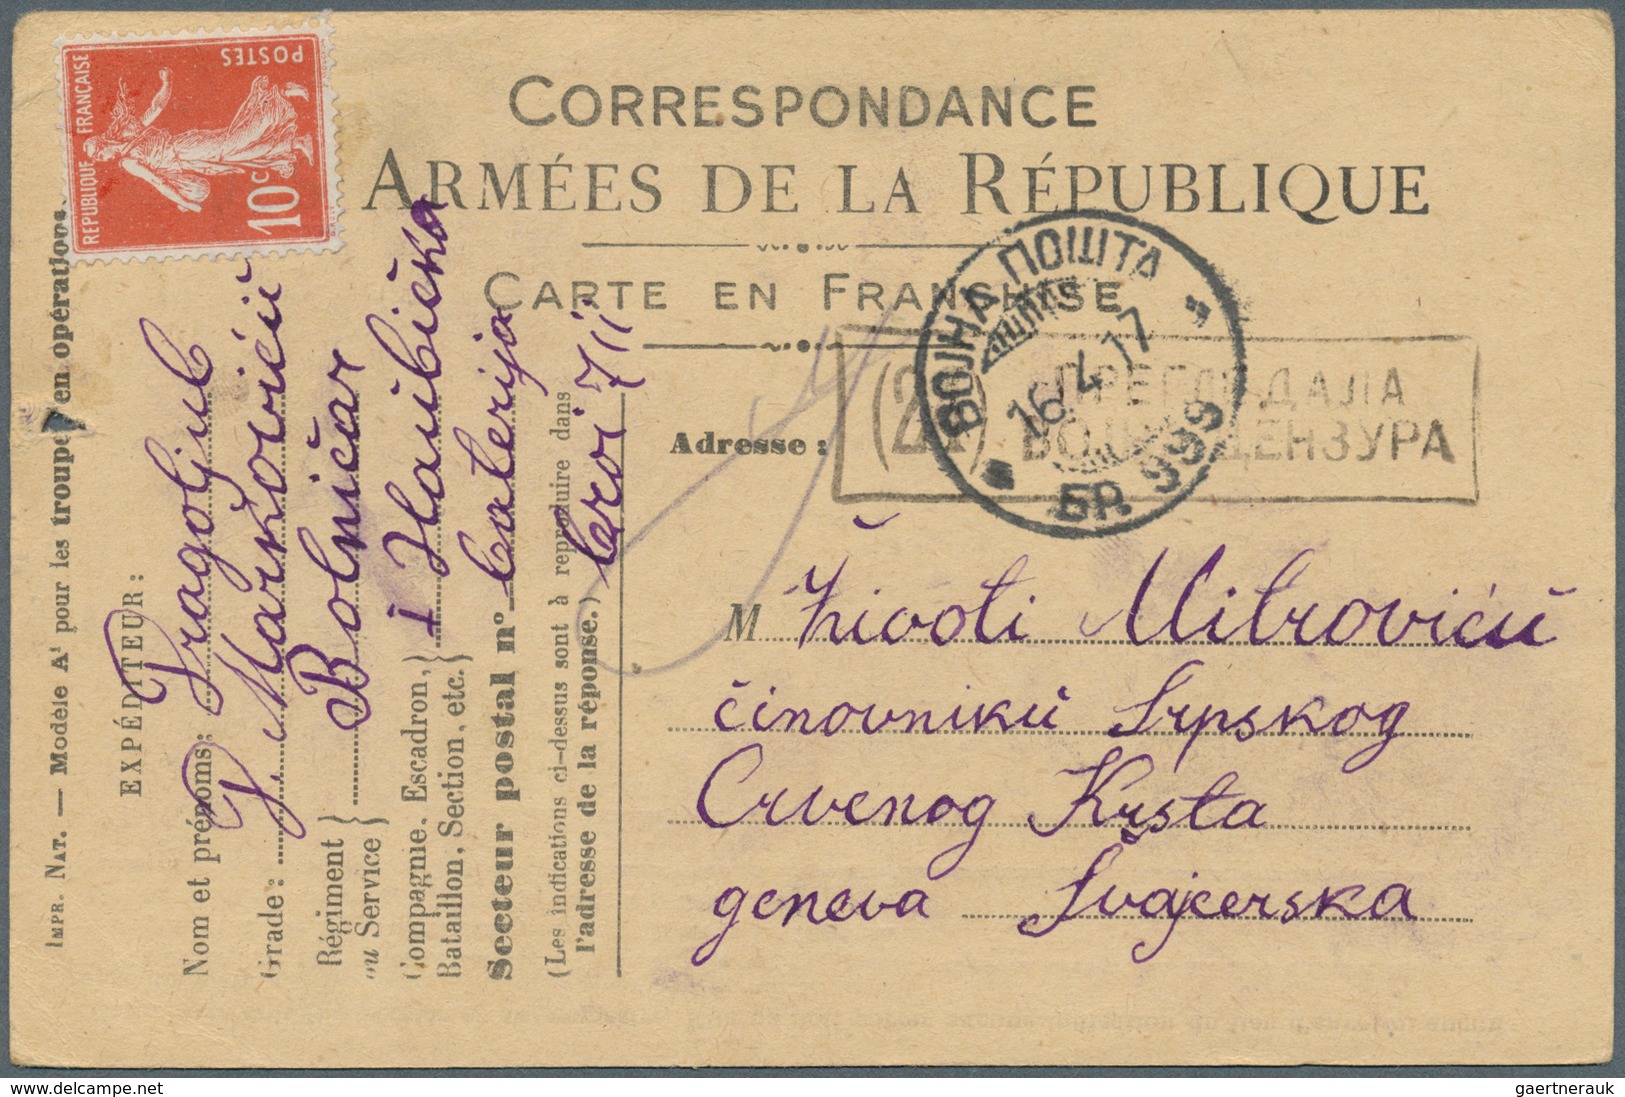 CORRESPONDANCE
ARMÉES DE LA RÉPUBLIQUE
CARTE EN FRANCHISE
REPUBLIQUE FRANÇAISE
POSTES
10 c
ВОЈНА ПОШТА
16.4.17
БР. 999
ПРЕГЛЕДАЛА
ВОЈНА ЦЕНЗУРА
Adresse :
M Životi Mitroviću
činovniku Srpskog
Crvenog Krsta
geneva Svajcerska
IMPR. NAT. — Modèle A¹ pour les troupes en opérations.
EXPÉDITEUR :
Nom et prénoms : Dragoljub
Grade : J. Marković
Régiment
ou Service } Bolničar
Compagnie, Escadron,
Bataillon, Section, etc. } I Haubička
Secteur postal nº baterija
(Les indications ci-dessus sont à reproduire dans
l'adresse de la réponse.)
gaertnerauk @ www.delcampe.net